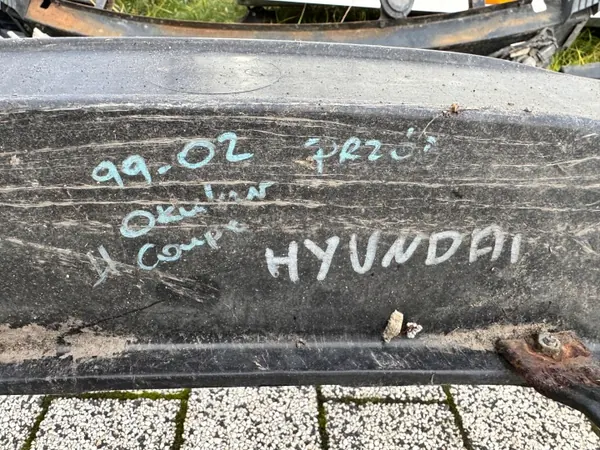 99-02 PRZÓD
Okular
H Coupe
HYUNDAI